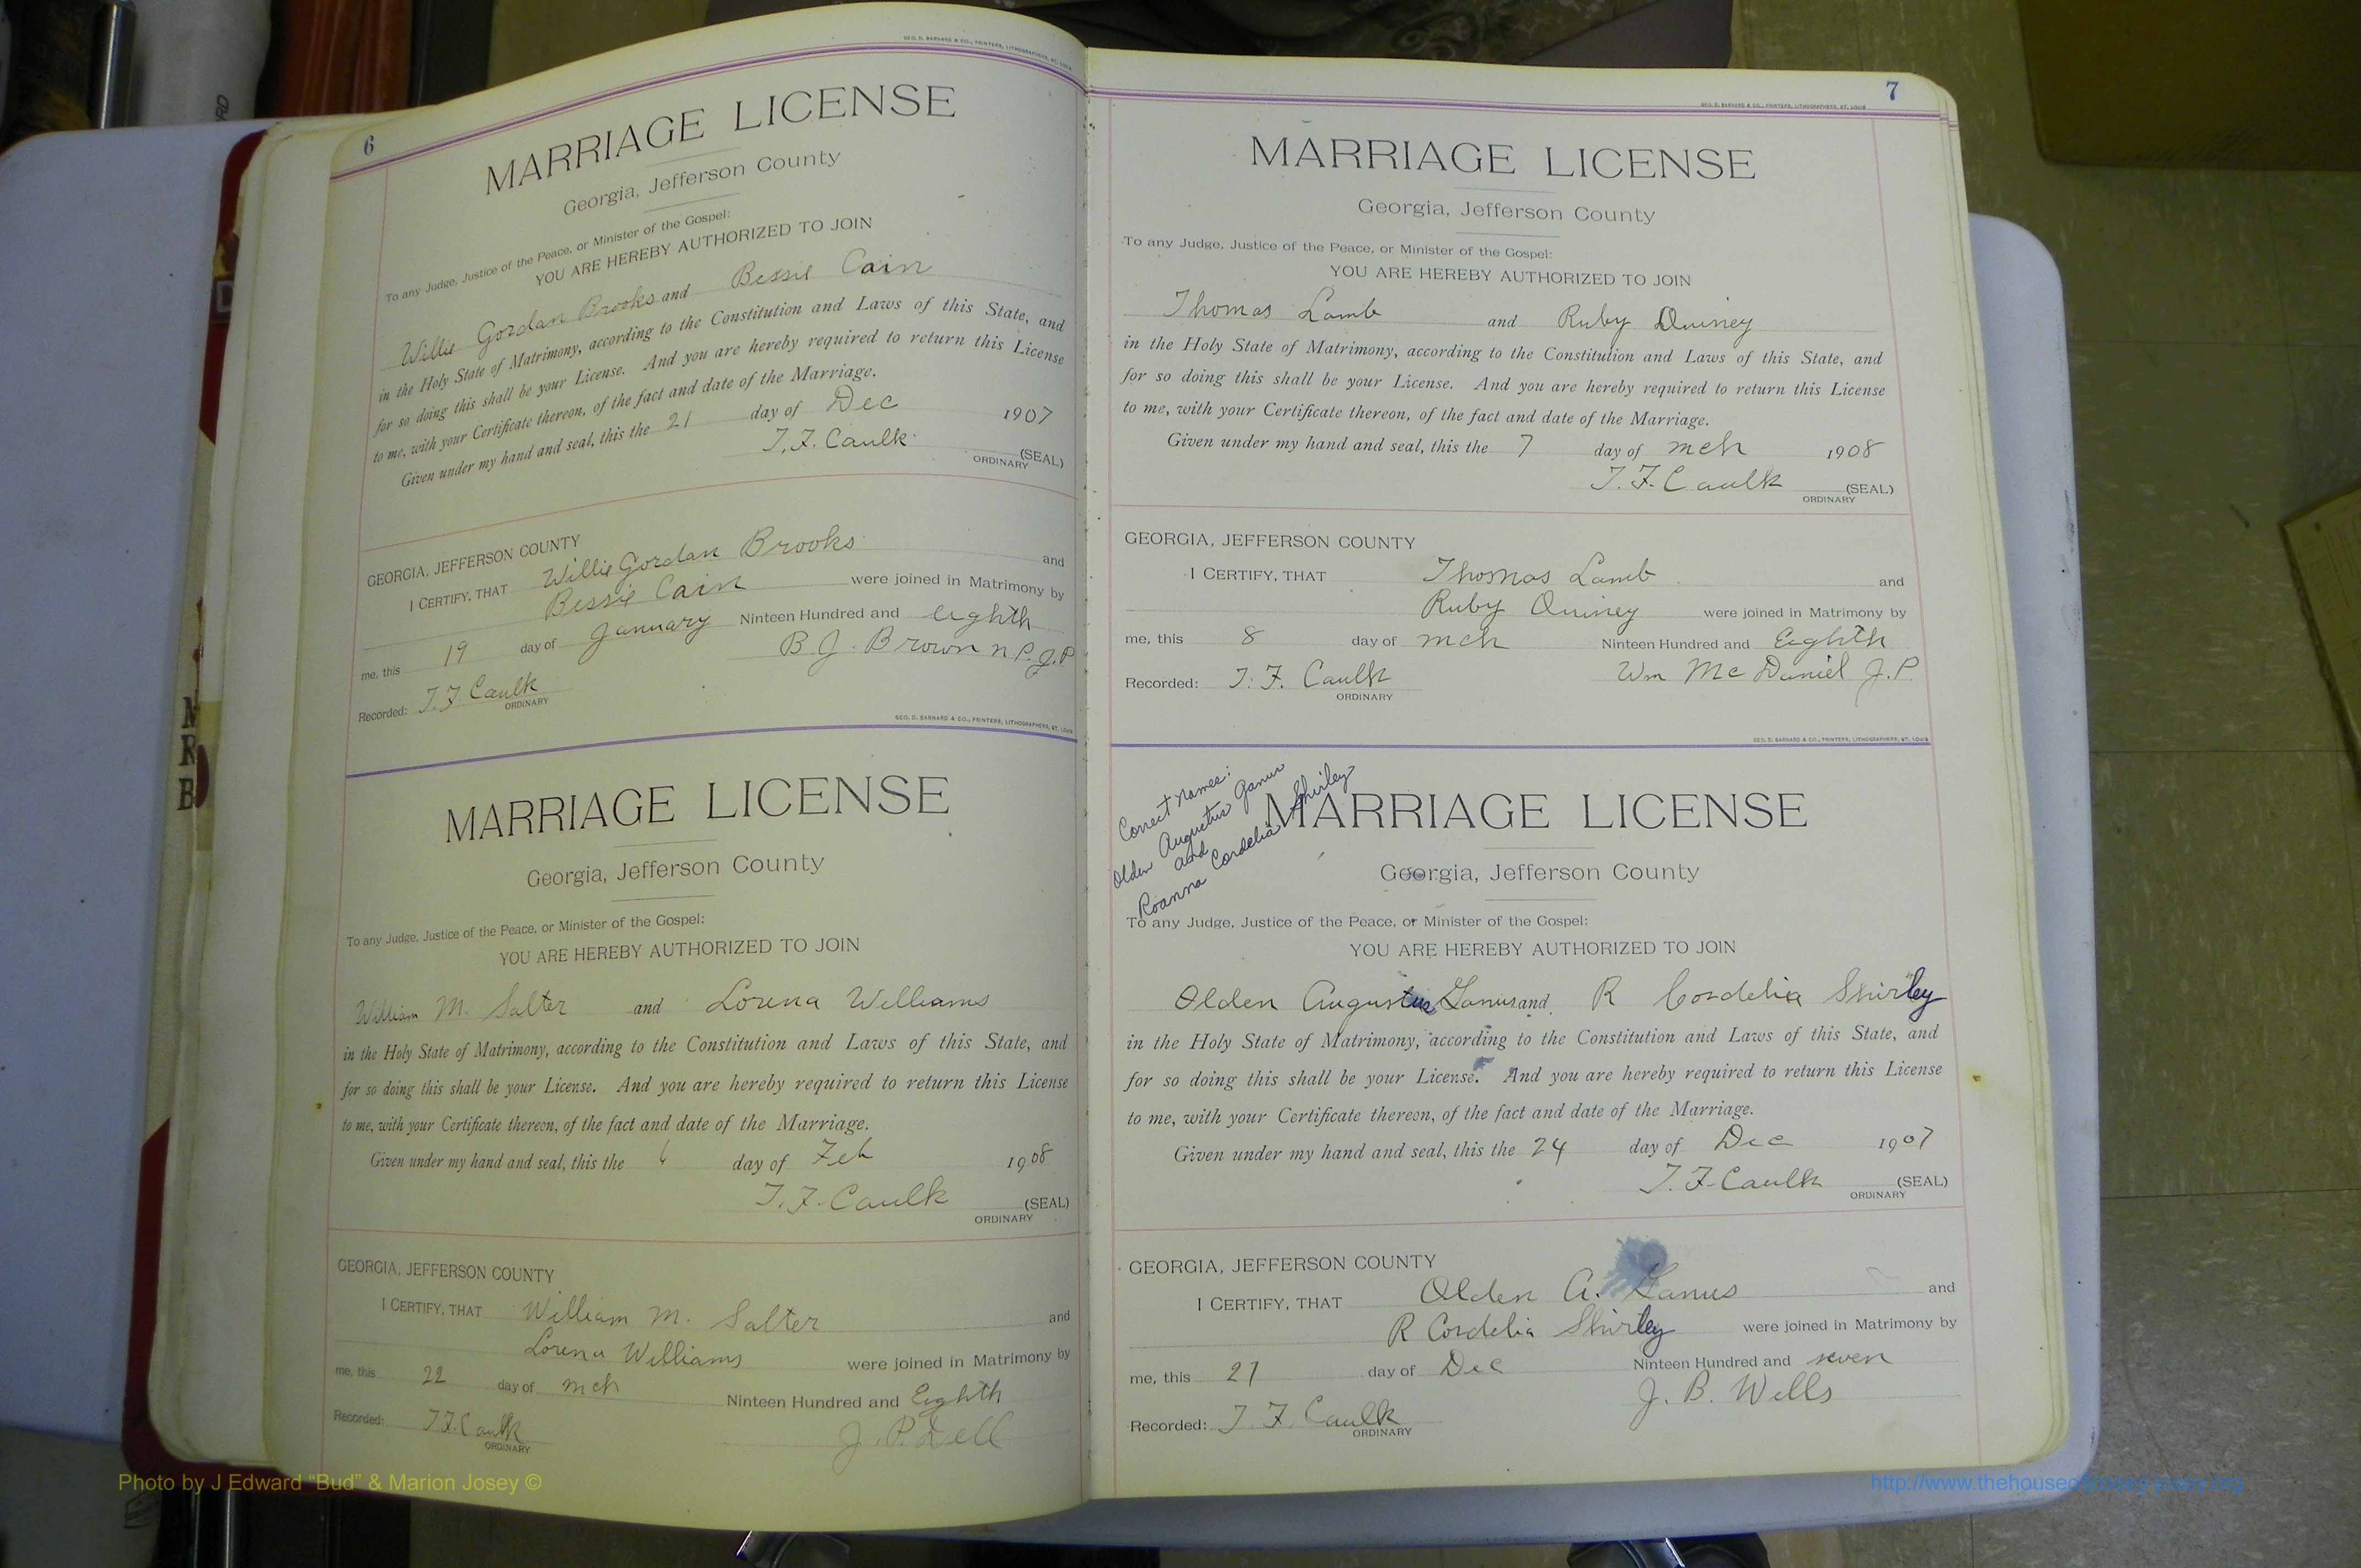 GEO. D. BARNARD & CO., PRINTERS, LITHOGRAPHERS, ST. LOUIS
6
MARRIAGE LICENSE
Georgia, Jefferson County
To any Judge, Justice of the Peace, or Minister of the Gospel:
YOU ARE HEREBY AUTHORIZED TO JOIN
Willie Gordan Brooks and Bessie Cain
in the Holy State of Matrimony, according to the Constitution and Laws of this State, and
for so doing this shall be your License. And you are hereby required to return this License
to me, with your Certificate thereon, of the fact and date of the Marriage.
Given under my hand and seal, this the 21 day of Dec 1907
T. F. Caulk (SEAL)
ORDINARY
GEORGIA, JEFFERSON COUNTY
I CERTIFY, THAT Willie Gordan Brooks and
Bessie Cain were joined in Matrimony by
me, this 19 day of January Ninteen Hundred and eighth
B. J. Brown N P. J. P
Recorded: T. F Caulk
ORDINARY
GEO. D. BARNARD & CO., PRINTERS, LITHOGRAPHERS, ST. LOUIS
MARRIAGE LICENSE
Georgia, Jefferson County
To any Judge, Justice of the Peace, or Minister of the Gospel:
YOU ARE HEREBY AUTHORIZED TO JOIN
William M. Salter and Lorena Williams
in the Holy State of Matrimony, according to the Constitution and Laws of this State, and
for so doing this shall be your License. And you are hereby required to return this License
to me, with your Certificate thereon, of the fact and date of the Marriage.
Given under my hand and seal, this the day of Feb 1908
T. F. Caulk (SEAL)
ORDINARY
GEORGIA, JEFFERSON COUNTY
I CERTIFY, THAT William M. Salter and
Lorena Williams were joined in Matrimony by
me, this 22 day of mch Ninteen Hundred and Eighth
J. P. Dell
Recorded: T F. Caulk
ORDINARY
7
GEO. D. BARNARD & CO., PRINTERS, LITHOGRAPHERS, ST. LOUIS
MARRIAGE LICENSE
Georgia, Jefferson County
To any Judge, Justice of the Peace, or Minister of the Gospel:
YOU ARE HEREBY AUTHORIZED TO JOIN
Thomas Lamb and Ruby Quiney
in the Holy State of Matrimony, according to the Constitution and Laws of this State, and
for so doing this shall be your License. And you are hereby required to return this License
to me, with your Certificate thereon, of the fact and date of the Marriage.
Given under my hand and seal, this the 7 day of mch 1908
T. F. Caulk (SEAL)
ORDINARY
GEORGIA, JEFFERSON COUNTY
I CERTIFY, THAT Thomas Lamb and
Ruby Quiney were joined in Matrimony by
me, this 8 day of mch Ninteen Hundred and Eighth
Wm McDaniel J. P.
Recorded: T. F. Caulk
ORDINARY
GEO. D. BARNARD & CO., PRINTERS, LITHOGRAPHERS, ST. LOUIS
Correct names:
Olden Augustus Ganus
and
Roanna Cordelia Shirley
MARRIAGE LICENSE
Georgia, Jefferson County
To any Judge, Justice of the Peace, or Minister of the Gospel:
YOU ARE HEREBY AUTHORIZED TO JOIN
Olden Augustus Ganus and R Cordelia Shirley
in the Holy State of Matrimony, according to the Constitution and Laws of this State, and
for so doing this shall be your License. And you are hereby required to return this License
to me, with your Certificate thereon, of the fact and date of the Marriage.
Given under my hand and seal, this the 24 day of Dec 1907
T. F. Caulk (SEAL)
ORDINARY
GEORGIA, JEFFERSON COUNTY
I CERTIFY, THAT Olden A. Ganus and
R Cordelia Shirley were joined in Matrimony by
me, this 27 day of Dec Ninteen Hundred and seven
J. B. Wells
Recorded: T F. Caulk
ORDINARY
Photo by J Edward “Bud” & Marion Josey ©